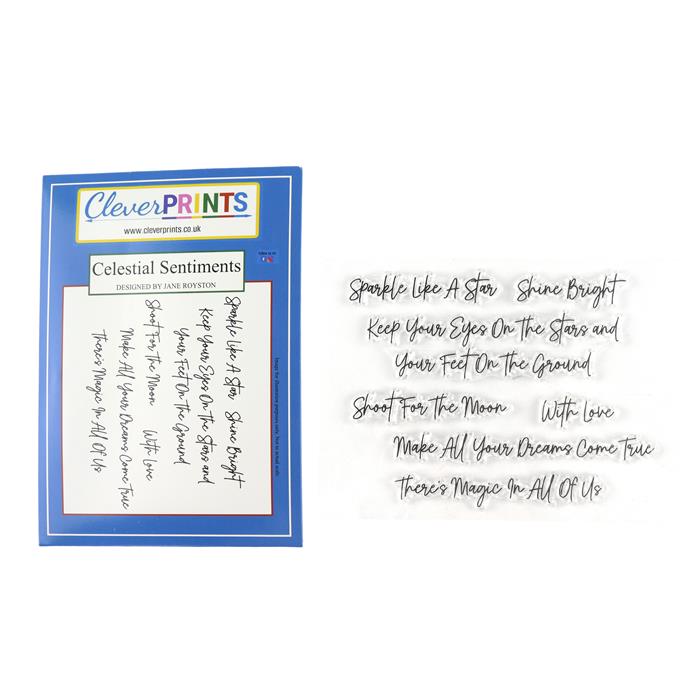 CleverPRINTS
www.cleverprints.co.uk
Celestial Sentiments
DESIGNED BY JANE ROYSTON
Sparkle Like A Star Shine Bright
Keep Your Eyes On the Stars and
Your Feet On the Ground
Shoot For the Moon With Love
Make All Your Dreams Come True
There's Magic In All Of Us
Sparkle Like A Star Shine Bright
Keep Your Eyes On the Stars and
Your Feet On the Ground
Shoot For the Moon With Love
Make All Your Dreams Come True
There's Magic In All Of Us